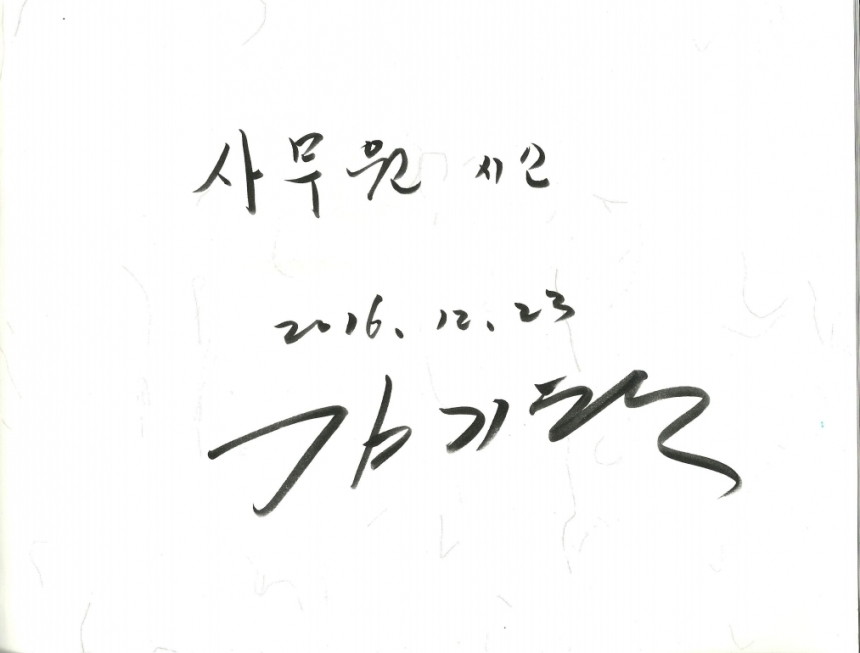 사무원 시인
2016. 12. 23
김기택